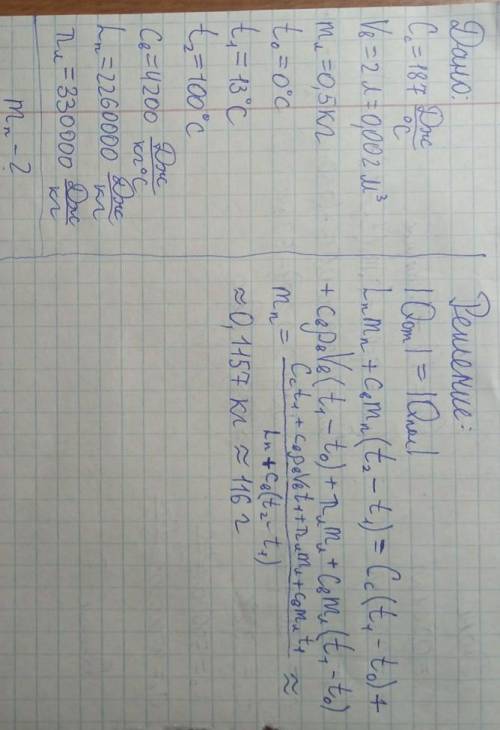 Дано:
Cc = 187 Дж/°C
Vв = 2 л = 0,002 м³
mл = 0,5 кг
t₀ = 0°C
t₁ = 13°C
t₂ = 100°C
Cв = 4200 Дж/кг°C
Lп = 2260000 Дж/кг
πл = 330000 Дж/кг
mп - ?
Решение:
|Qотд| = |Qпол|
Lпmп + cвmп(t₂ - t₁) = Cc(t₁ - t₀) +
+ cвρвVв(t₁ - t₀) + πлmл + cвmл(t₁ - t₀)
mп = (Cct₁ + cвρвVвt₁ + πлmл + cвmлt₁)/(Lп + cв(t₂ - t₁)) ≈
≈ 0,1157 кг ≈ 116 г